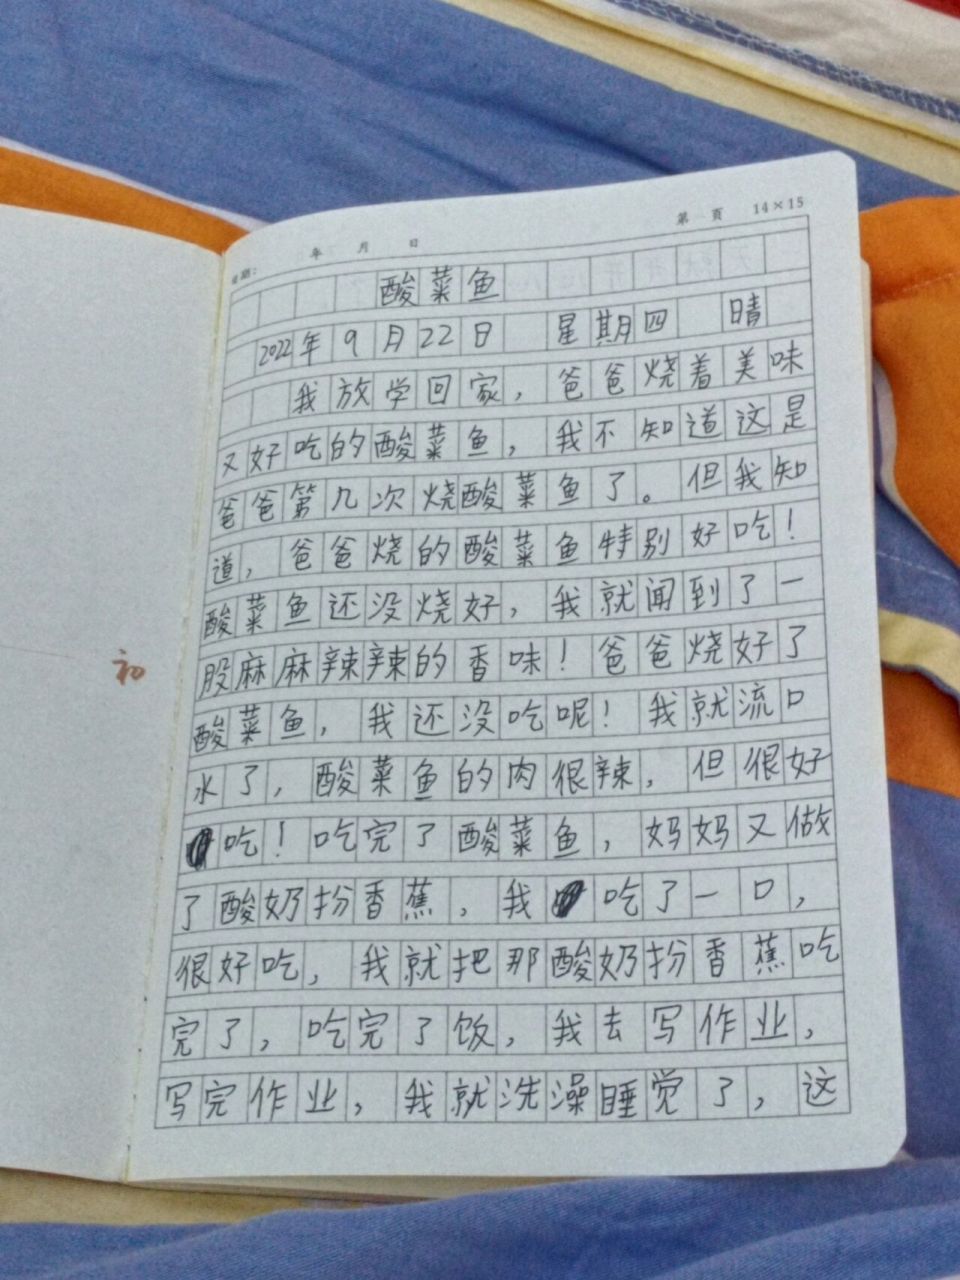 日期: 年 月 日 第 页 14×15
酸菜鱼
2022年9月22日 星期四 晴
我放学回家，爸爸烧着美味
又好吃的酸菜鱼，我不知道这是
爸爸第几次烧酸菜鱼了。但我知
道，爸爸烧的酸菜鱼特别好吃！
酸菜鱼还没烧好，我就闻到了一
股麻麻辣辣的香味！爸爸烧好了
酸菜鱼，我还没吃呢！我就流口
水了，酸菜鱼的肉很辣，但很好
吃！吃完了酸菜鱼，妈妈又做
了酸奶扮香蕉，我吃了一口，
很好吃，我就把那酸奶扮香蕉吃
完了，吃完了饭，我去写作业，
写完作业，我就洗澡睡觉了，这
初